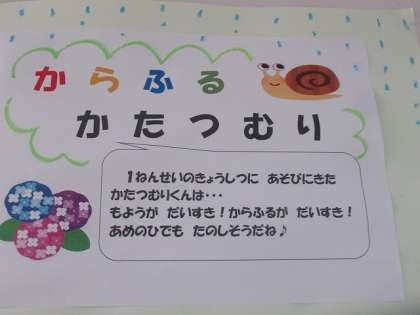 からふる
かたつむり
1ねんせいのきょうしつに あそびにきた
かたつむりくんは・・・
もようが だいすき！からふるが だいすき！
あめのひでも たのしそうだね♪